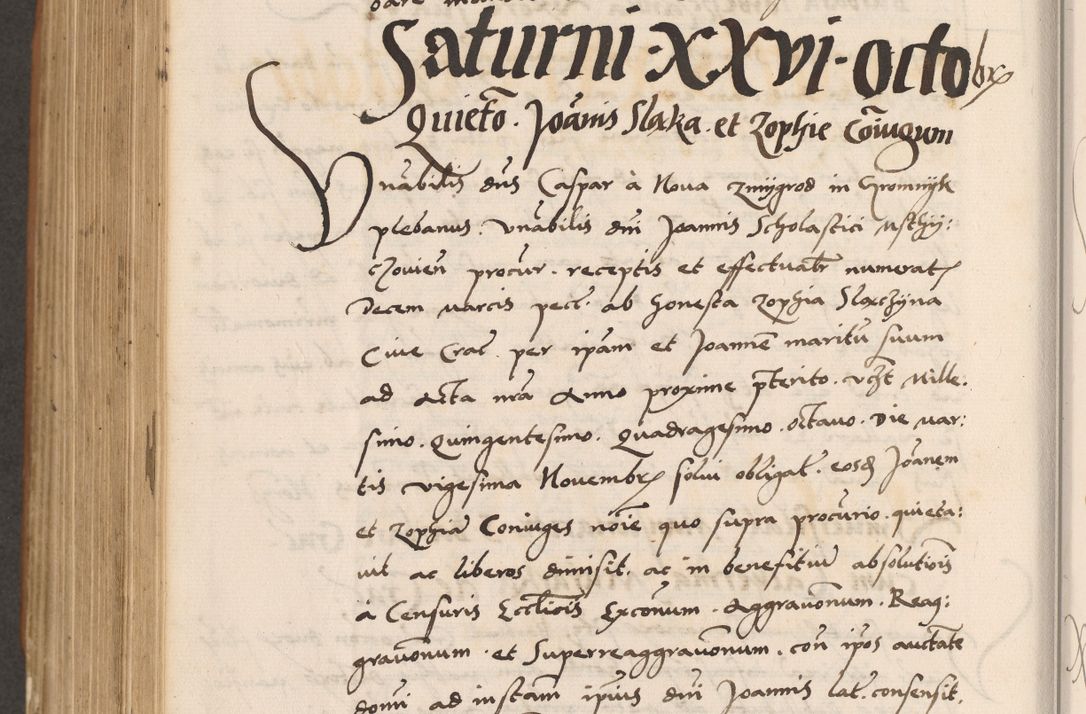 Saturni · XXVI · octobr
Quietō · Joānis Slaka · et Zophie Cōiugum
Vnābilis dn̄s Caspar à Nova Zmÿgrod in Gromnÿk
plebanus · vnābilis dn̄i Joannis Scholastici Wsthÿ:
czovien̄ procur · receptis et effectualr̄ numerat
Decem marcis pec̄ · ab honesta Zophia Slaczÿna
Ciue Crac̄ · per ip̄am et Joannē maritū suum
ad Acta nrā Anno proxime p̄terito · vc̄zt Mille:
simo · Quingentesimo · Quadragesimo · octauo · Die mar:
tis vigesima Novembr solui obligat̄ · eosd Joānem
et Zophiā Coniuges nōie quo supra procūrio · quieta:
uit ac liberos dimisit · ac in benefitiū absolutiōis
à Censuris Eccl̄icis Excōnum · Aggrauōnum · Reag:
grauōnum · et Superreaggrauōnum · con̄ ip̄os auctate
domi ad instam̄ ip̄ius dn̄i Joannis lat̄ · consensit ·